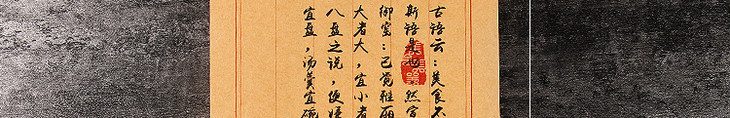 古语云：美食不
斯语是也 然宫
御窑：已觉雅丽
大者大，宜小者
八盘之说，便嫌
宜盘，汤羹宜碗